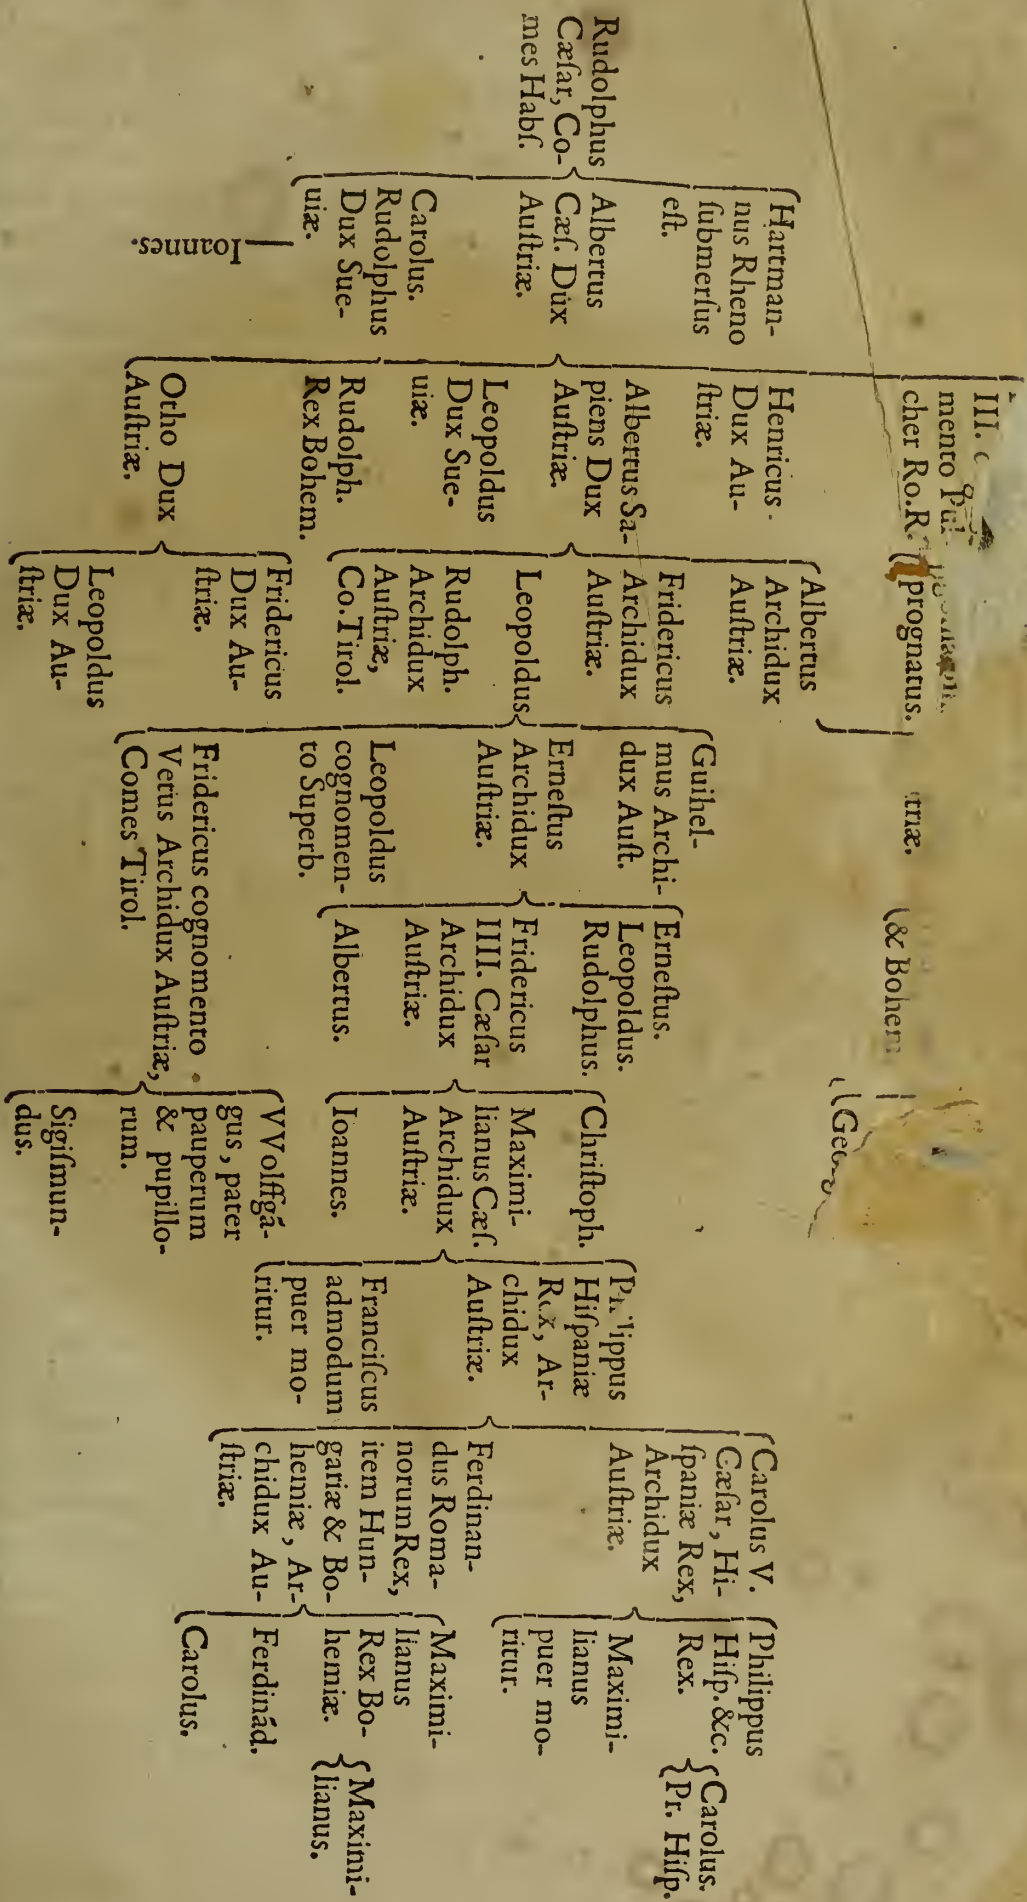 Rudolphus
Cæſar, Co-
mes Habſ.
Hartman-
nus Rheno
ſubmerſus
eſt.
Albertus
Cæſ. Dux
Auſtriæ.
Carolus.
Rudolphus
Dux Sue-
uiæ.
Ioannes.
III.
mento
cher Ro.R.
Henricus
Dux Au-
ſtriæ.
Albertus Sa-
piens Dux
Auſtriæ.
Leopoldus
Dux Sue-
uiæ.
Rudolph.
Rex Bohem.
Otho Dux
Auſtriæ.
prognatus.
Albertus
Archidux
Auſtriæ.
Fridericus
Archidux
Auſtriæ.
Leopoldus
Rudolph.
Archidux
Auſtriæ,
Co. Tirol.
Fridericus
Dux Au-
ſtriæ.
Leopoldus
Dux Au-
ſtriæ.
Guihel-
mus Archi-
dux Auſt.
Erneſtus
Archidux
Auſtriæ.
Leopoldus
cognomen-
to Superb.
Fridericus cognomento
Vetus Archidux Auſtriæ,
Comes Tirol.
& Bohem
Erneſtus.
Leopoldus.
Rudolphus.
Fridericus
IIII. Cæſar
Archidux
Auſtriæ.
Albertus.
Chriſtoph.
Maximi-
lianus Cæſ.
Archidux
Auſtriæ.
Ioannes.
VVolffgā-
gus, pater
pauperum
& pupillo-
rum.
Sigiſmun-
dus.
Philippus
Hiſpaniæ
Rex, Ar-
chidux
Auſtriæ.
Franciſcus
admodum
puer mo-
ritur.
Carolus V.
Cæſar, Hi-
ſpaniæ Rex,
Archidux
Auſtriæ.
Ferdinan-
dus Roma-
norum Rex,
item Hun-
gariæ & Bo-
hemiæ, Ar-
chidux Au-
ſtriæ.
Philippus
Hiſp. &c.
Rex.
Maximi-
lianus
puer mo-
ritur.
Maximi-
lianus
Rex Bo-
hemiæ.
Ferdinād.
Carolus.
Carolus.
Pr. Hiſp.
Maximi-
lianus.